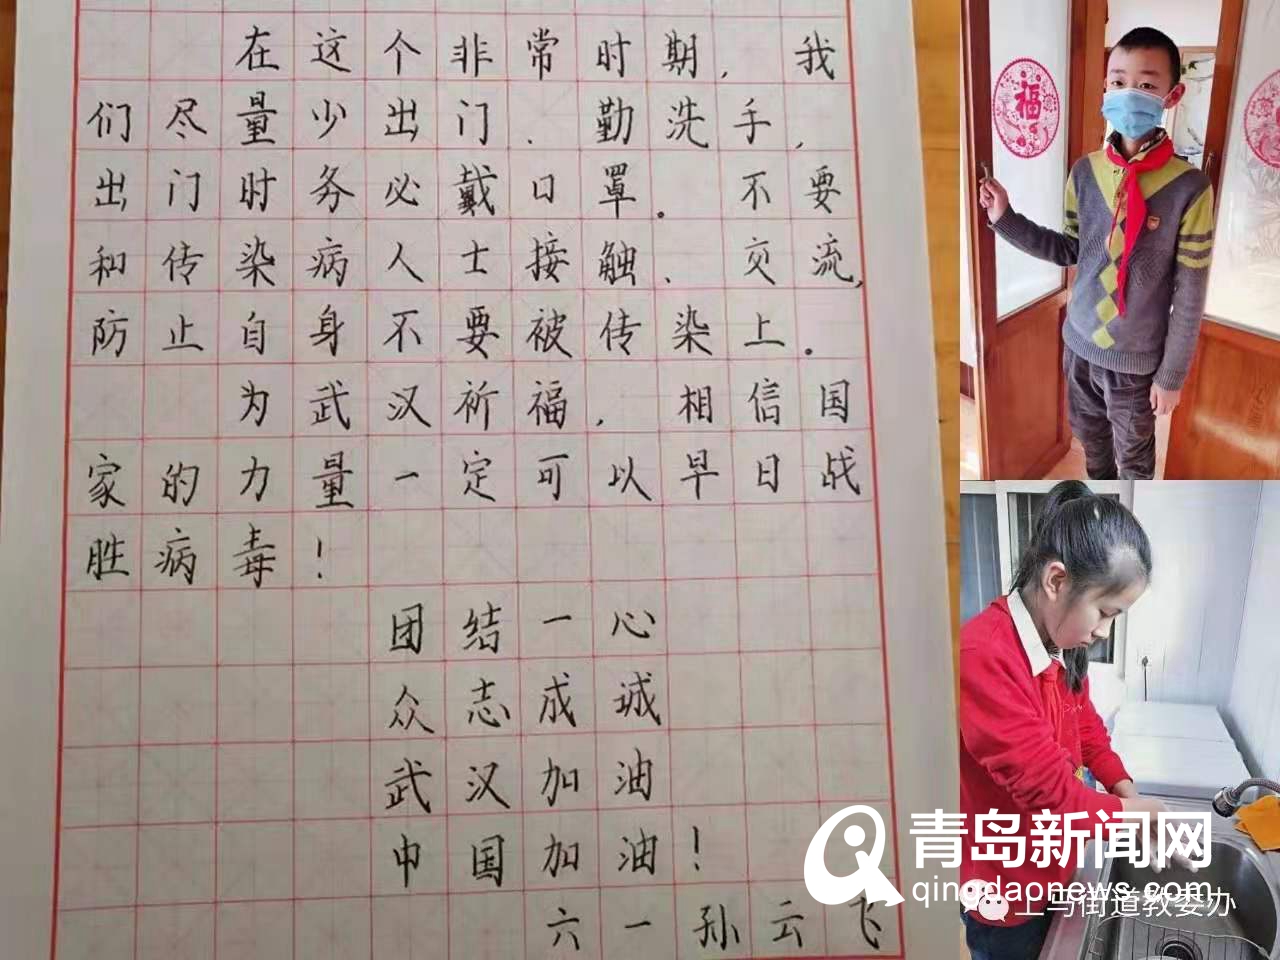 在这个非常时期，我
们尽量少出门、勤洗手，
出门时务必戴口罩。不要
和传染病人士接触、交流，
防止自身不要被传染上。
为武汉祈福，相信国
家的力量一定可以早日战
胜病毒！
团结一心
众志成诚
武汉加油
中国加油！
六一孙云飞
福
福
青岛新闻网
qingdaonews.com
上马街道教委办